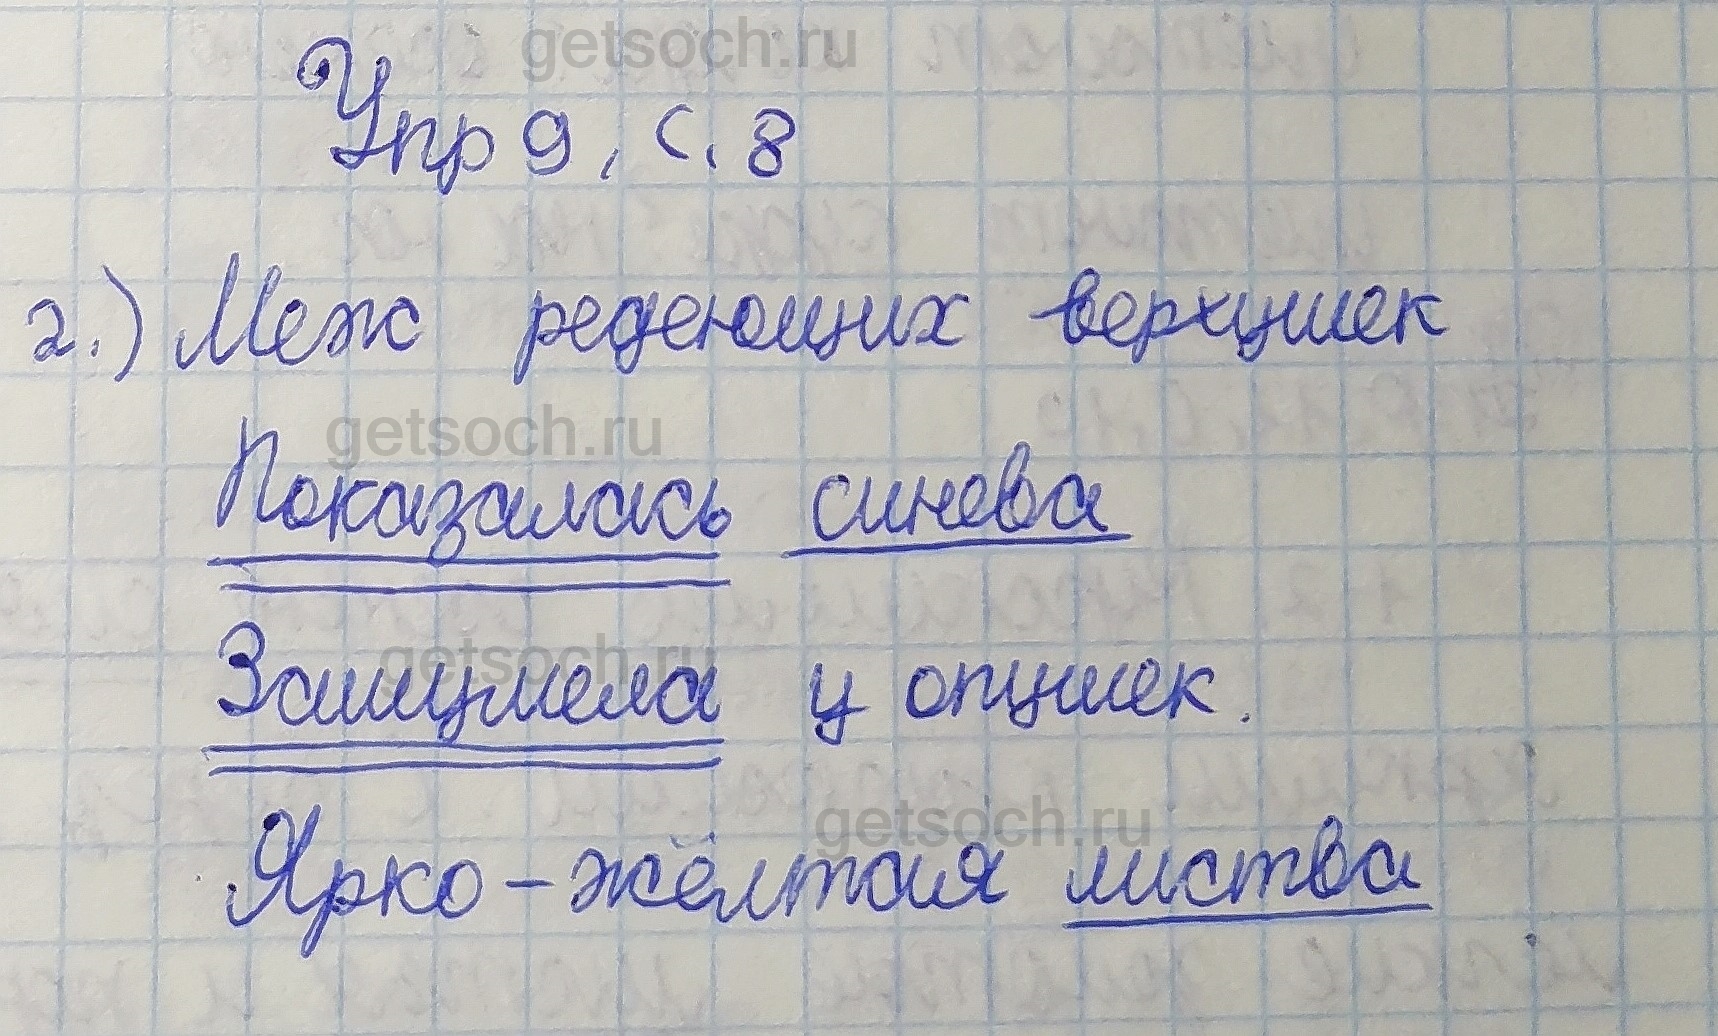 getsoch.ru
Упр 9, с. 8
2.) Меж редеющих верхушек
getsoch.ru
Показалась синева
getsoch.ru
Зашумела у опушек.
getsoch.ru
Ярко-жёлтая листва